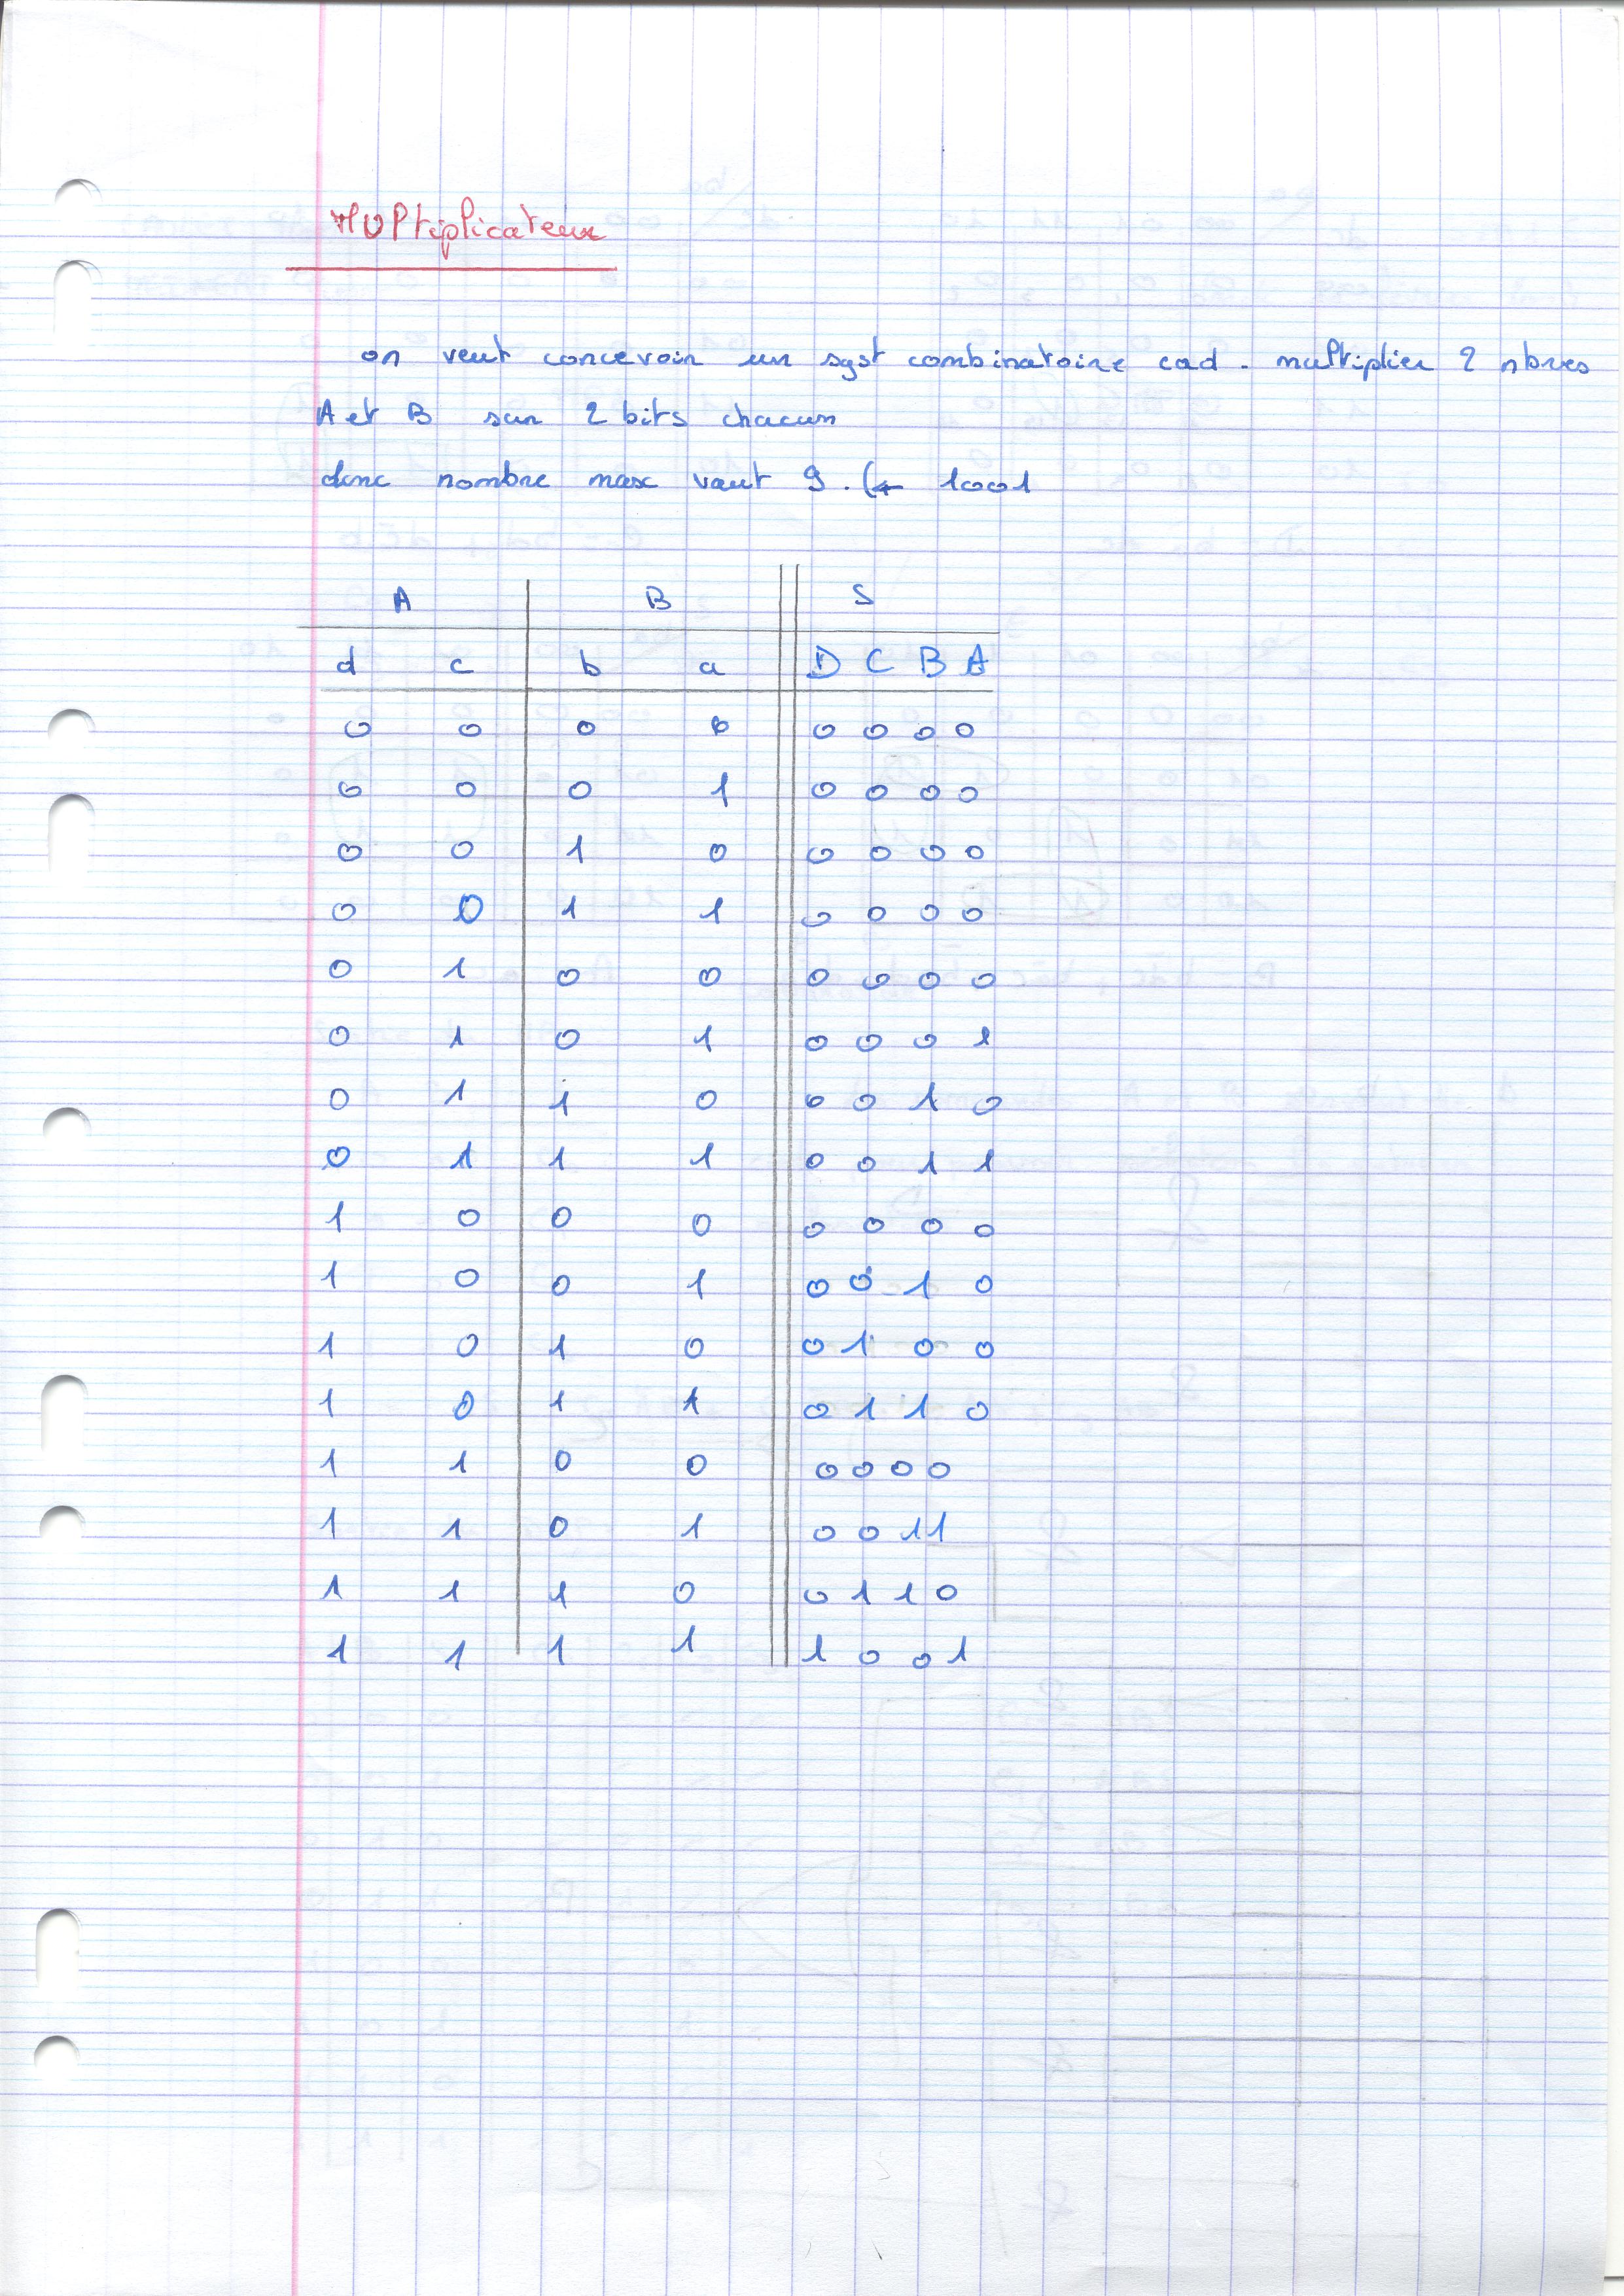 Multiplicateur
on veut concevoir un syst combinatoire cad. multiplier 2 nbres
A et B sur 2 bits chacun
donc nombre max vaut 9. (← 1001
A B S
d c b a D C B A
0 0 0 0 0 0 0 0
0 0 0 1 0 0 0 0
0 0 1 0 0 0 0 0
0 0 1 1 0 0 0 0
0 1 0 0 0 0 0 0
0 1 0 1 0 0 0 1
0 1 1 0 0 0 1 0
0 1 1 1 0 0 1 1
1 0 0 0 0 0 0 0
1 0 0 1 0 0 1 0
1 0 1 0 0 1 0 0
1 0 1 1 0 1 1 0
1 1 0 0 0 0 0 0
1 1 0 1 0 0 1 1
1 1 1 0 0 1 1 0
1 1 1 1 1 0 0 1